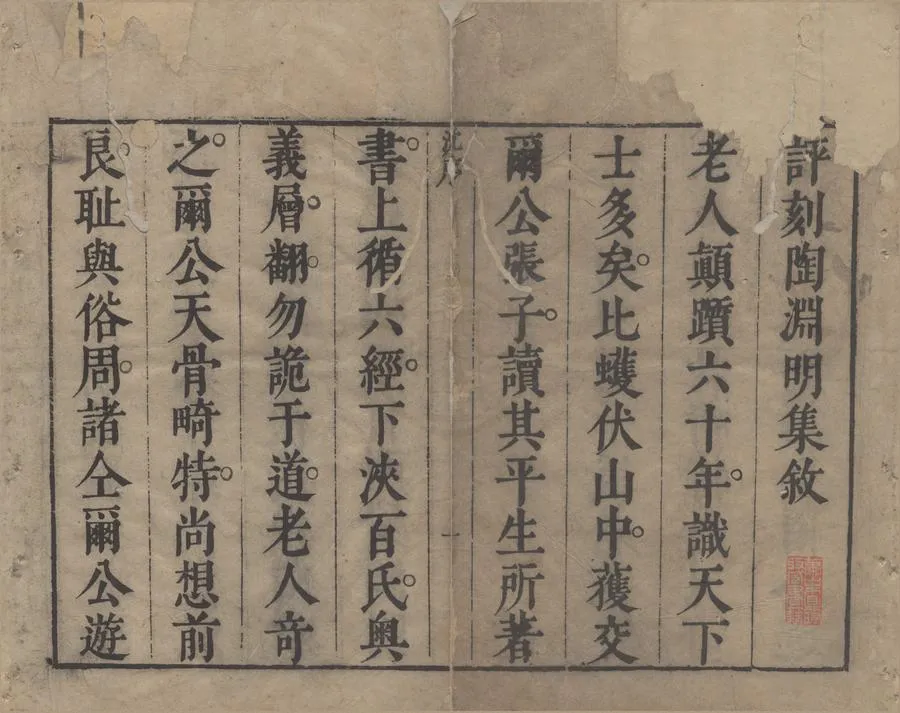 評刻陶淵明集敘
老人顛躓六十年。識天下
士多矣。比蠖伏山中。獲交
爾公張子。讀其平生所著
書。上循六經。下浹百氏。奧
義層。翻。勿詭于道。老人奇
之。爾公天骨畸特。尚想前
良。耻與俗周。諸仝爾公遊